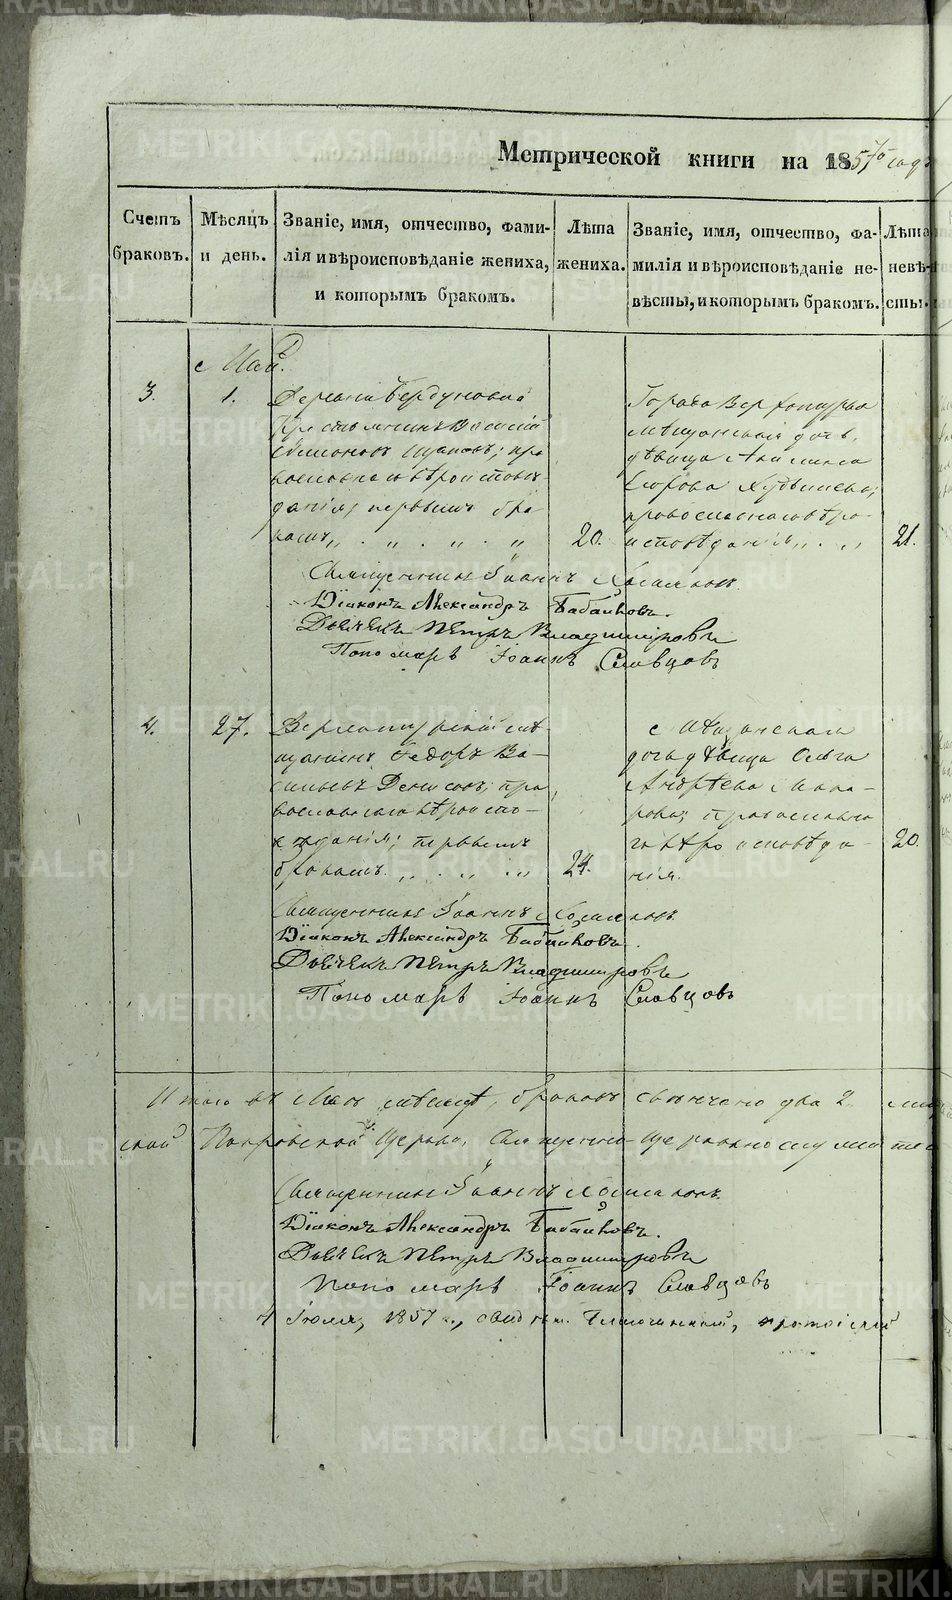 Метрической книги на 1857го годъ
Счетъ браковъ.
Мѣсяцъ и день.
Званіе, имя, отчество, фами-
лія и вѣроисповѣданіе жениха,
и которымъ бракомъ.
Лѣта
жениха.
Званіе, имя, отчество, фа-
милія и вѣроисповѣданіе не-
вѣсты, и которымъ бракомъ.
Лѣта
невѣ-
сты.
Май.
3.
1.
Деревни
крестьянинъ Василій
Симоновъ пра
вославнаго вѣроисповѣ
данія; первымъ бра
комъ
20.
Города Верхотурья
мѣщанская дочь,
дѣвица Акилина
Егорова
православнаго вѣро-
исповѣданія
21.
Священникъ Іоаннъ Хосманов.
Діаконъ Александръ Бабановъ.
Дьячекъ Петръ Владимировъ
Пономарь Іоаннъ Словцовъ
4.
27.
Верхотурскій мѣ-
щанинъ Федоръ Ва-
сильевъ Денисов; пра
вославнаго вѣроиспо-
вѣданія; первымъ
бракомъ.
24.
Мѣщанская
дочь дѣвица Ольга
Андрѣева Мака-
рова; православна
го вѣроисповѣда-
нія.
20.
Священникъ Іоаннъ
Діаконъ Александръ
Дьячекъ Петръ Владимировъ
Пономарь Іоаннъ Словцовъ
Итого въ Маѣ мѣсяцѣ, браковъ свѣнчано два 2
ской Покровской Церкви, Священно-Церковнослужите
Священникъ Іоаннъ
Діаконъ Александръ
Дьячекъ Петръ Владимировъ
Пономарь Іоаннъ Словцовъ
4 Іюля, 1857 г., свид. Благочинный, протоіерей
METRIKI.GASO-URAL.RU